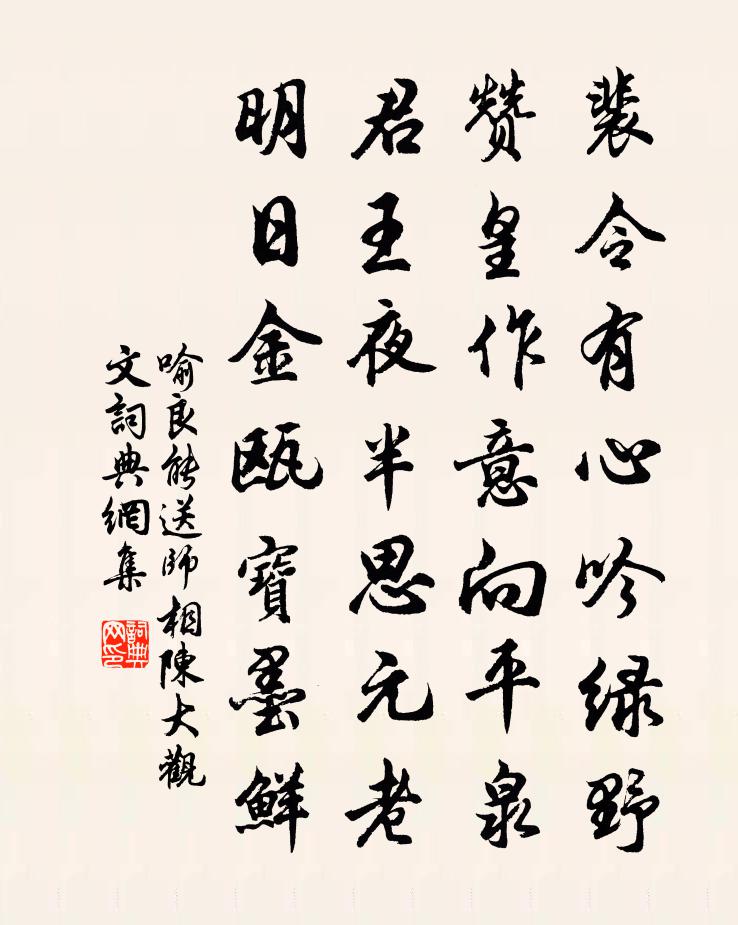 裴令有心吟緑野
赞皇作意向平泉
君王夜半思元老
明日金瓯寶墨鮮
喻良能送師相陳大觀
文詞典網集
詞典网印